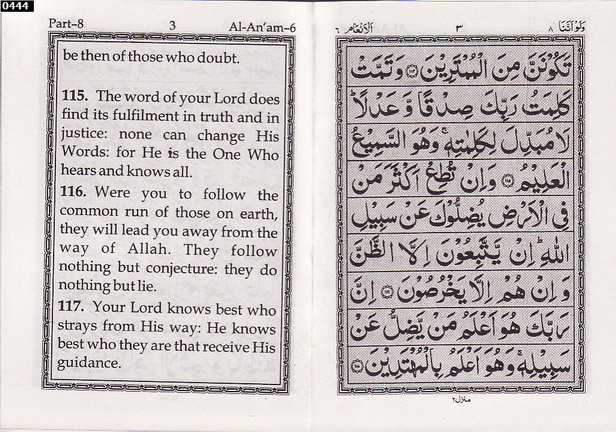 0444
Part-8 3 Al-An'am-6
be then of those who doubt.
115. The word of your Lord does
find its fulfilment in truth and in
justice: none can change His
Words: for He is the One Who
hears and knows all.
116. Were you to follow the
common run of those on earth,
they will lead you away from the
way of Allah. They follow
nothing but conjecture: they do
nothing but lie.
117. Your Lord knows best who
strays from His way: He knows
best who they are that receive His
guidance.
ولو اننا ٨ ٣ الانعام ٦
تَكُوْنَنَّ مِنَ الْمُمْتَرِيْنَ ﴿١١٤﴾ وَتَمَّتْ
كَلِمَتُ رَبِّكَ صِدْقًا وَّعَدْلًا ؕ
لَا مُبَدِّلَ لِكَلِمٰتِهٖ ۚ وَهُوَ السَّمِيْعُ
الْعَلِيْمُ ﴿١١٥﴾ وَاِنْ تُطِعْ اَكْثَرَ مَنْ
فِى الْاَرْضِ يُضِلُّوْكَ عَنْ سَبِيْلِ
اللّٰهِ ؕ اِنْ يَّتَّبِعُوْنَ اِلَّا الظَّنَّ
وَاِنْ هُمْ اِلَّا يَخْرُصُوْنَ ﴿١١٦﴾ اِنَّ
رَبَّكَ هُوَ اَعْلَمُ مَنْ يَّضِلُّ عَنْ
سَبِيْلِهٖ ۚ وَهُوَ اَعْلَمُ بِالْمُهْتَدِيْنَ ﴿١١٧﴾
منزل ٢